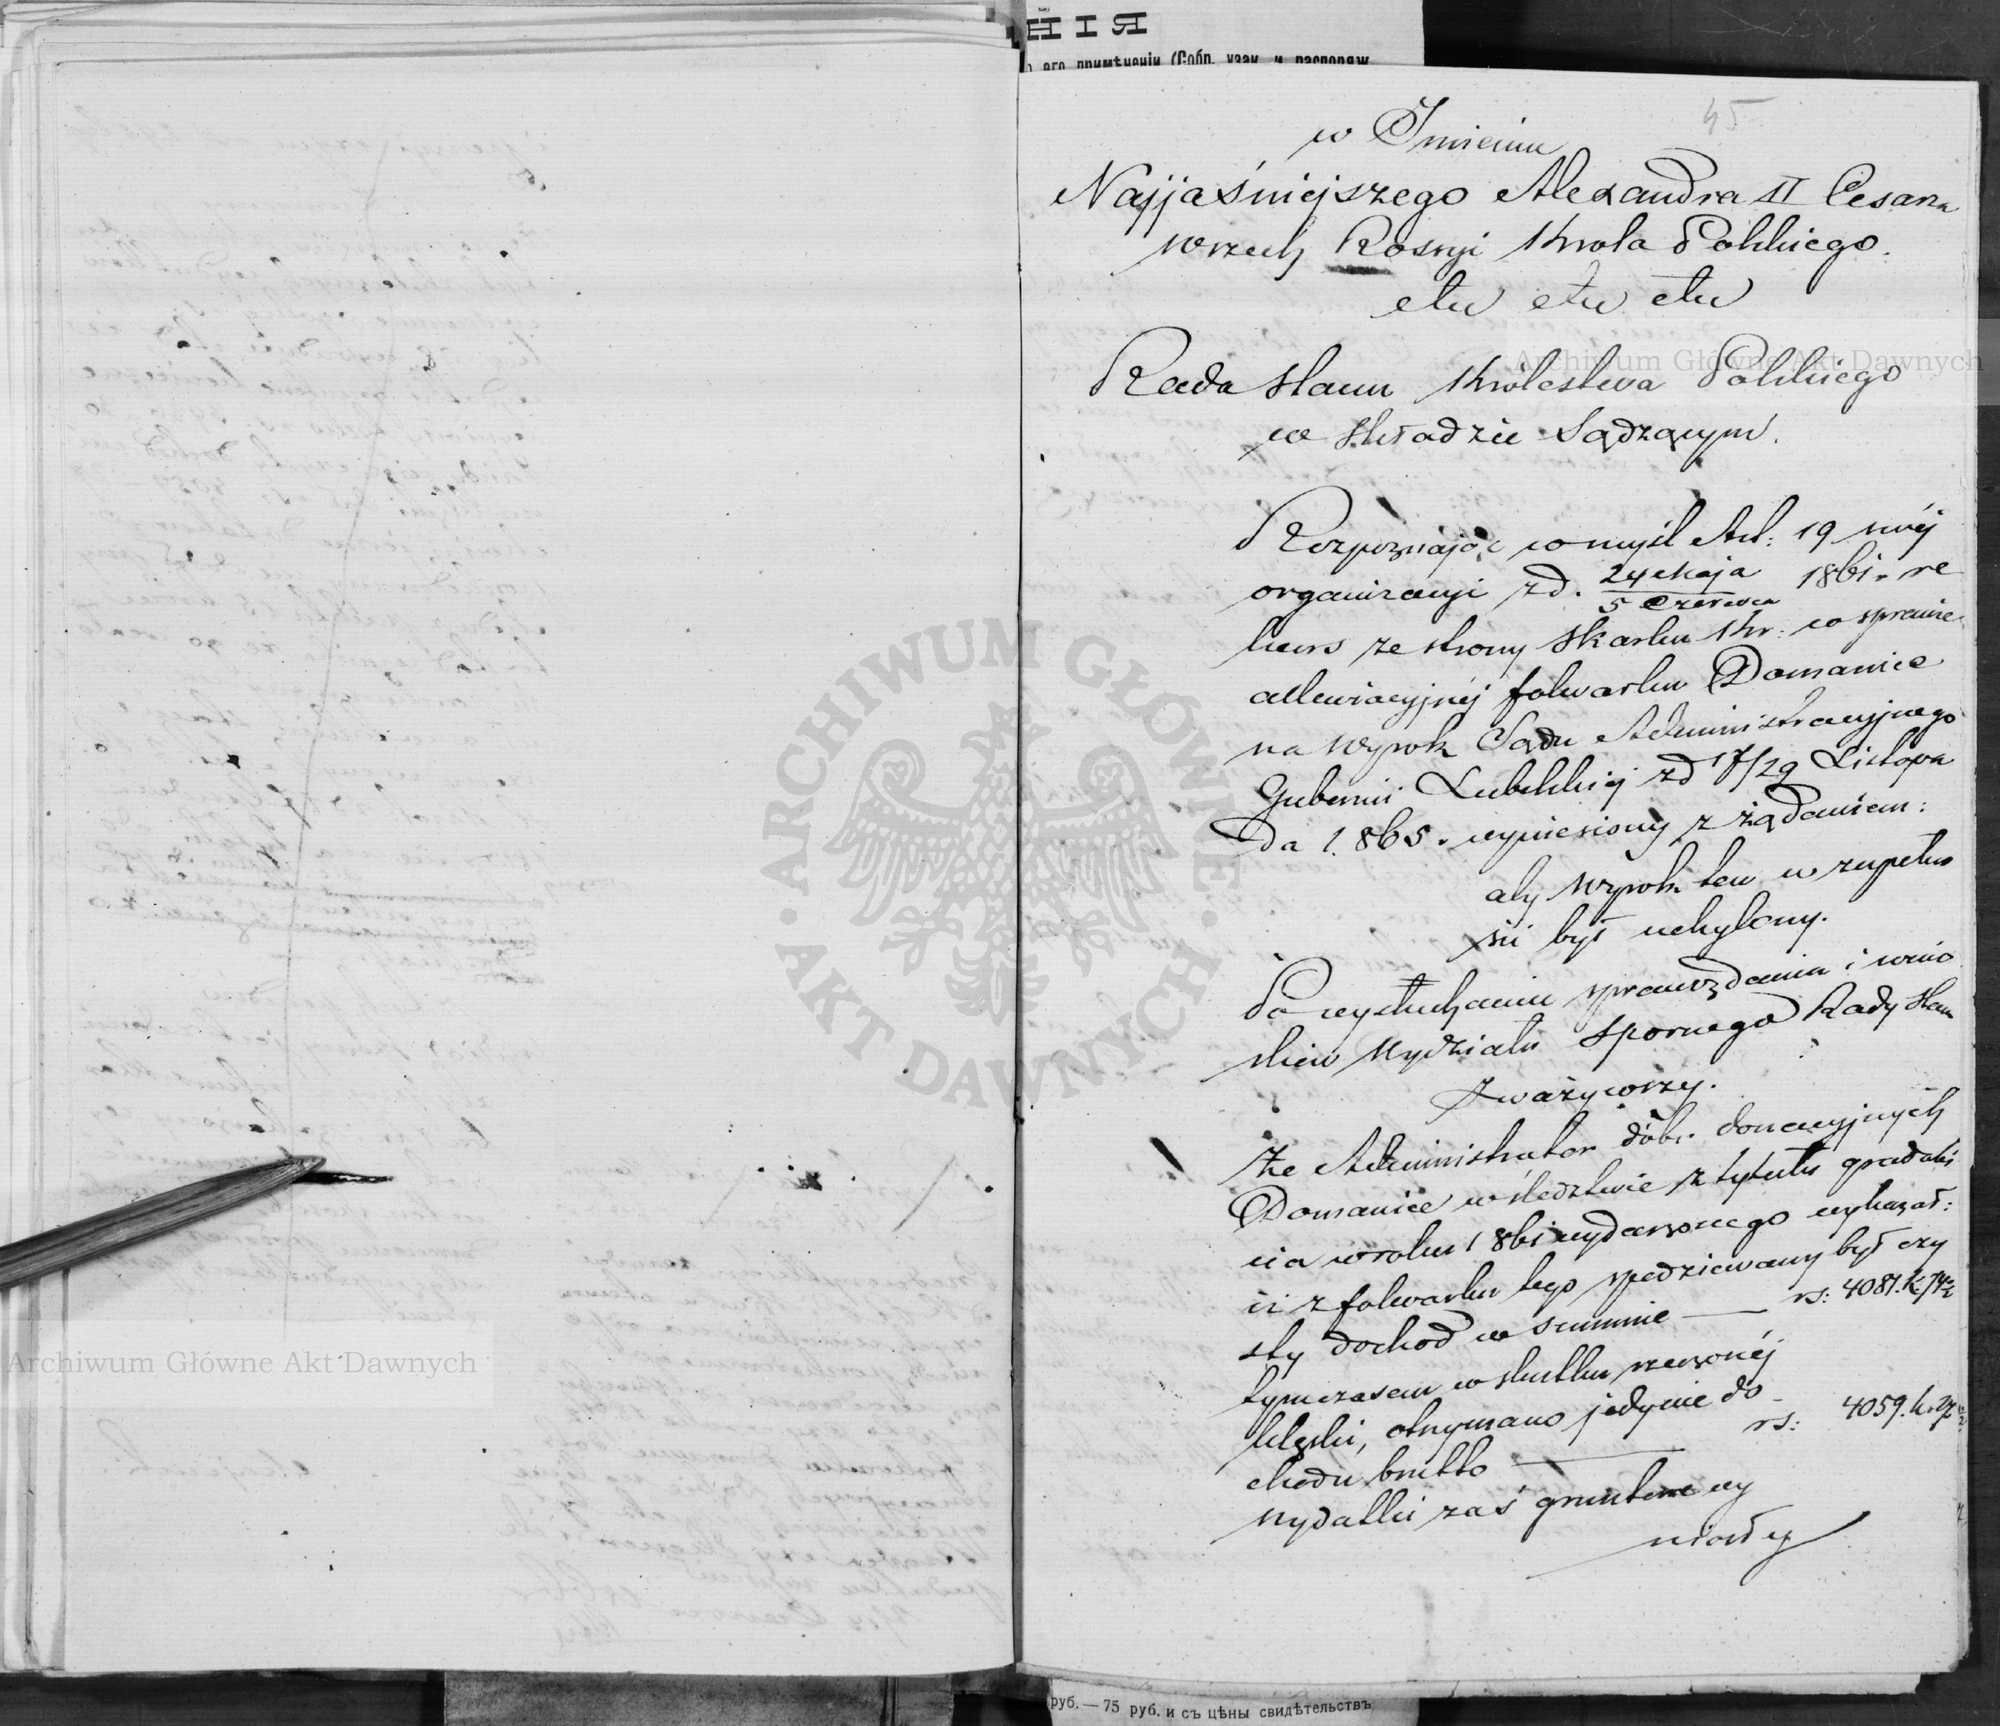 НІЯ
его примѣненіи (Собр. узак. и распоряж.
45
w Imieniu
Najjaśniejszego Alexandra II Cesarza
Wszech Rossyi Króla Polskiego.
etc etc etc
Rada Stanu Królestwa Polskiego
w Składzie Sądzącym.
Rozpoznając w myśl Art: 19 swéj
organizacyi z d. 24 Maja / 5 Czerwca 1861. re
kurs ze strony Skarbu Kr: w sprawie
allewiacyjnéj folwarku Domanice
na wyrok Sądu Administracyjnego
Gubernii Lubelskiej z d 17/29 Listopa
da 1865. wyniesiony z żądaniem:
aby wyrok ten w zupełno
ści był uchylony.
Po wysłuchaniu sprawozdania i wnio
sków Wydziału Spornego Rady Stanu
Zważywszy.
że Administrator dóbr donacyjnych
Domanice w śledztwie z tytułu gradobi
cia w roku 1861 wydarzonego wykazał:
iż z folwarku tego spodziewany był czy
sty dochód w summie — rs: 4081. k.
tymczasem w skutku rzeczonéj
klęski, otrzymano jedynie do-
chodu brutto — rs: 4059. k.
wydatki zaś gruntowe wy
niosły
Archiwum Główne Akt Dawnych
Archiwum Główne Akt Dawnych
ARCHIWUM GŁÓWNE · AKT DAWNYCH ·
руб. — 75 руб. и съ цѣны свидѣтельствъ